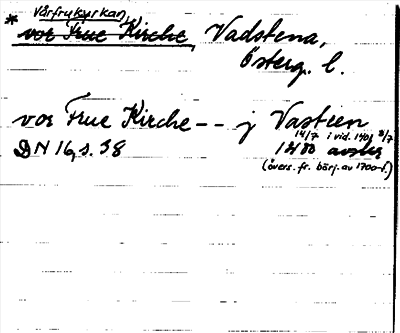 Vårfrukyrkan,
* vor Frue Kirche, Vadstena,
Österg. l.
vor Frue Kirche -- j Vasteen
14/7 i vid. 1401 8/7
DN 16, s. 38 1400 avskr
(övers. fr. börj. av 1700-t.)